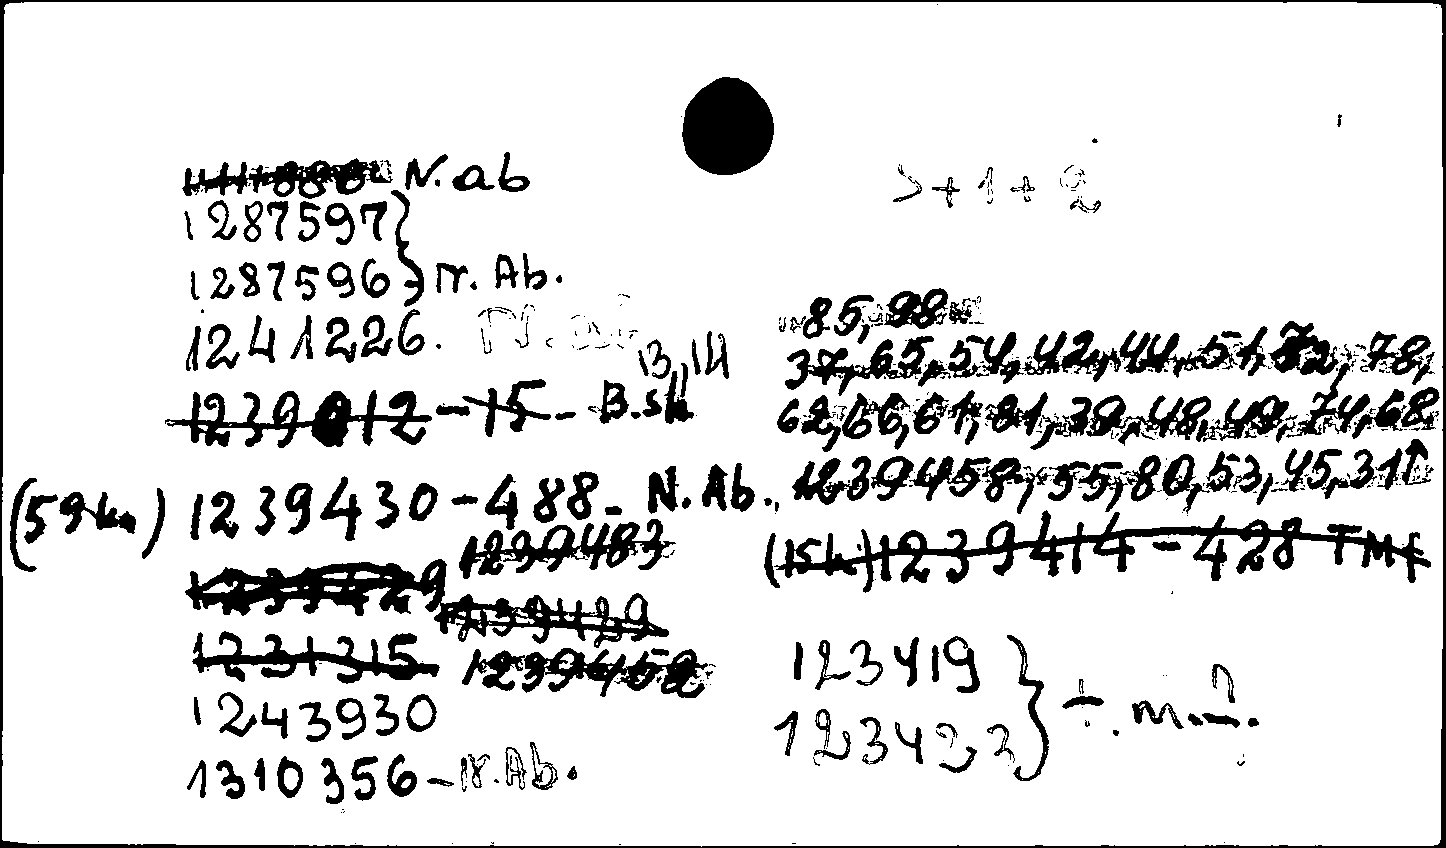 N. ab
1287597}
1287596} N. Ab.
12 41226. N. ab
13, 14
1239012 - 15 - B.sk
(59 kn) 1239430 - 488 - N. Ab.,
1239483
1239429
1239429
1231315 1239458
1243930
1310356 - N. Ab.
+ 1 + 2
85, 98
37, 65, 54, 42, 44, 51, 72, 78,
62, 66, 61, 81, 39, 48, 49, 74, 68
1239458, 55, 80, 53, 45, 31↑
(15 k) 1239414 - 428 TMF
123419
123423